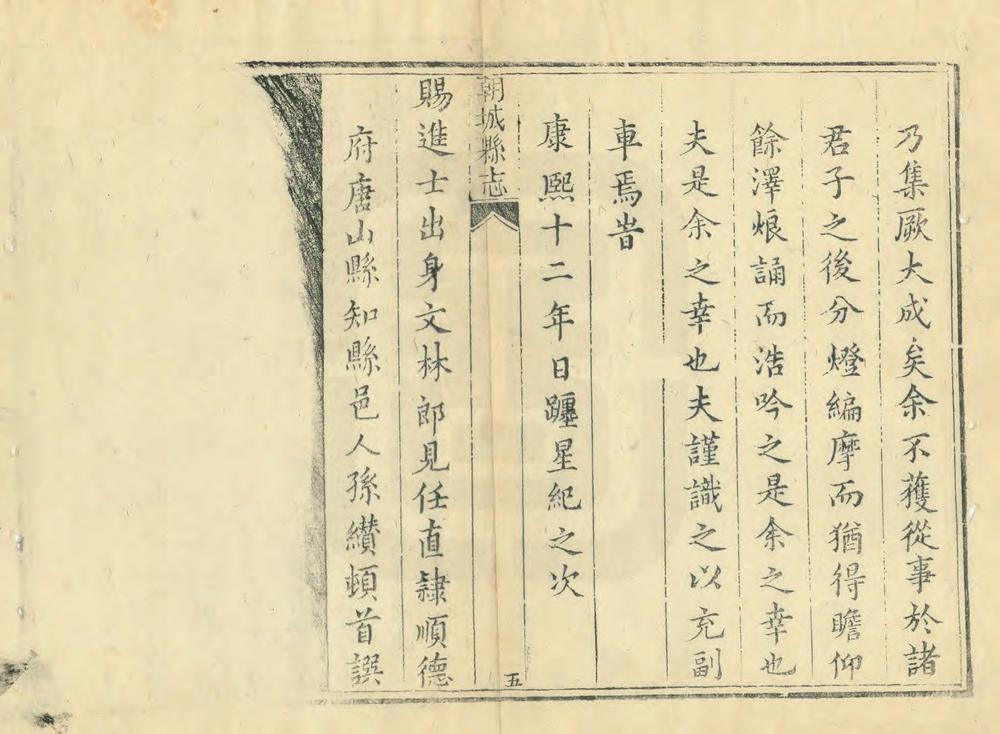 乃集厥大成矣余不獲從事於諸
君子之後分燈編摩而猶得瞻仰
餘澤烺誦而浩吟之是余之幸也
夫是余之幸也夫謹識之以充副
車焉旹
康熙十二年日躔星紀之次
朝城縣志
五
賜進士出身文林郎見任直隷順德
府唐山縣知縣邑人孫纘頓首譔